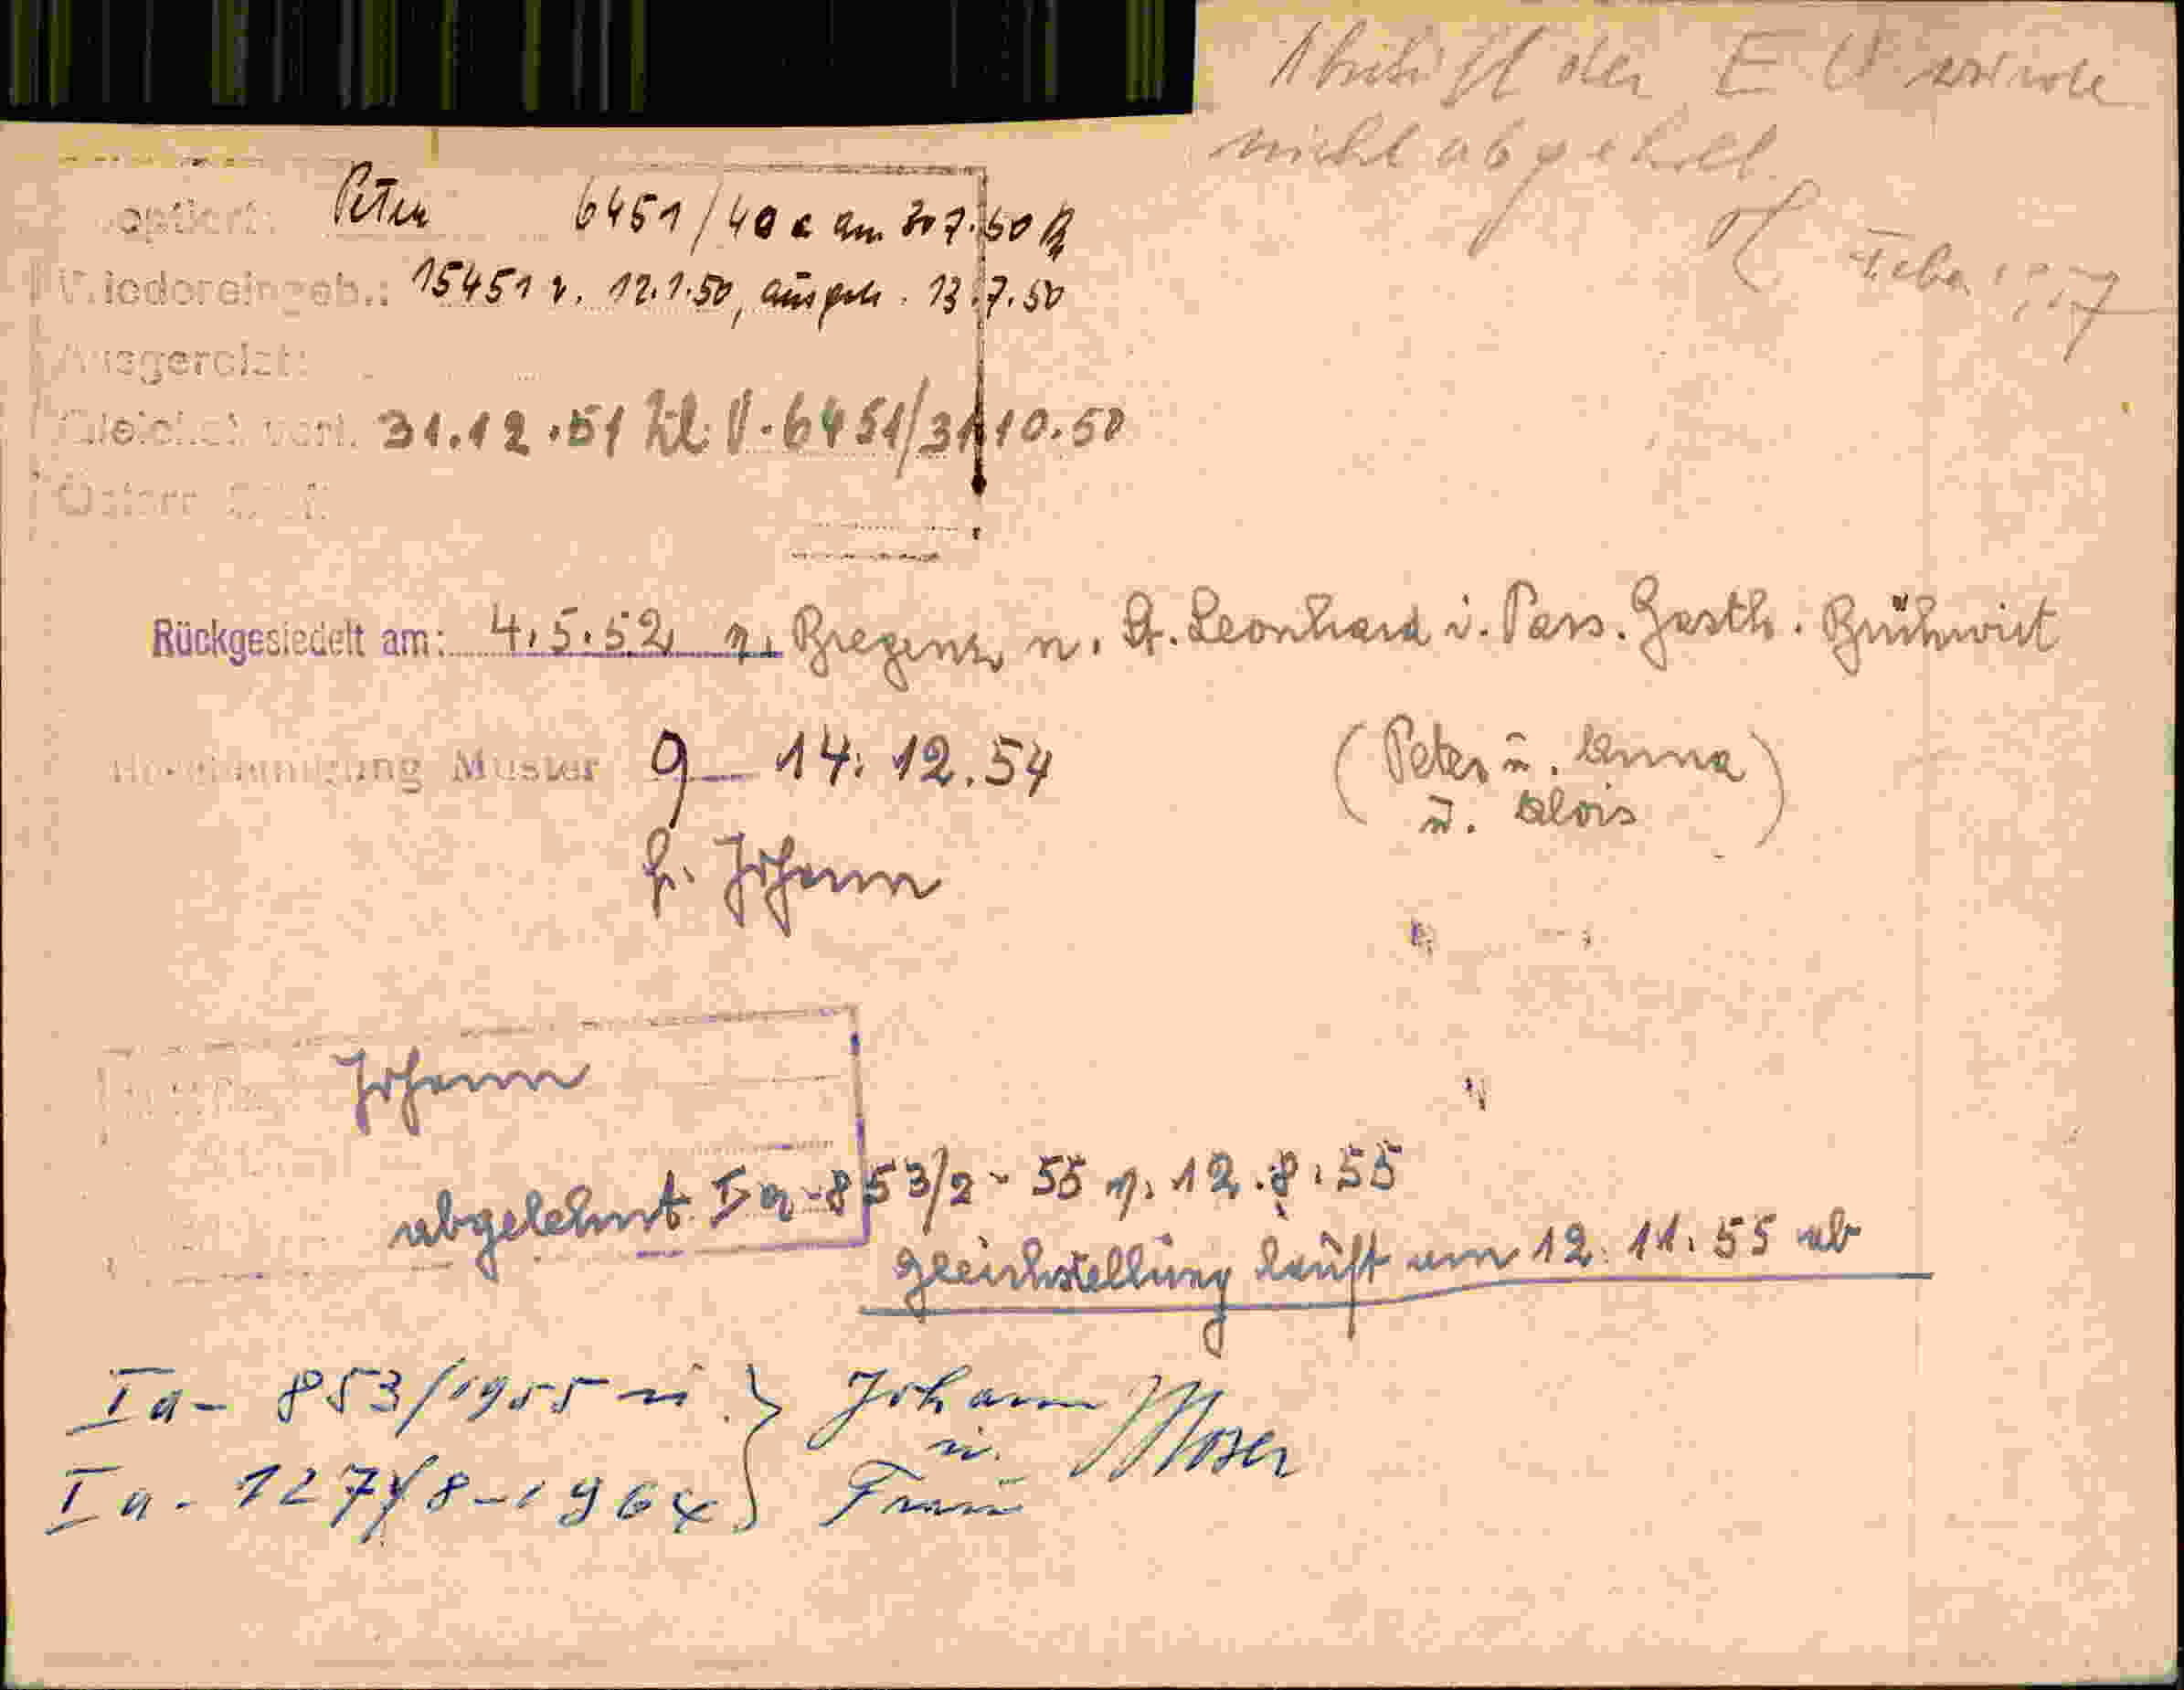 der E U wurde
nicht abgeholt
Feber 1957
optiert: Peter 6451/40 a am 7.50
Wiedereingeb.: 15451 v. 12.1.50, 13.7.50
Ausgereist:
31.12.51 Zl. V-6451/31 10.50
Österr.
Rückgesiedelt am: 4.5.52 v. Bregenz n. St. Leonhard i. Pass. Gasth. Brühwirt
Muster 9 14.12.54
(Peter u. Anna
u. Alois)
f. Johann
Johann
abgelehnt Ia-853/2-55 v. 12.8.55
Gleichstellung läuft am 12.11.55 ab
Ia- 853/1955 u. } Johann Moser
u.
Ia- 127/8-1964 } Frau